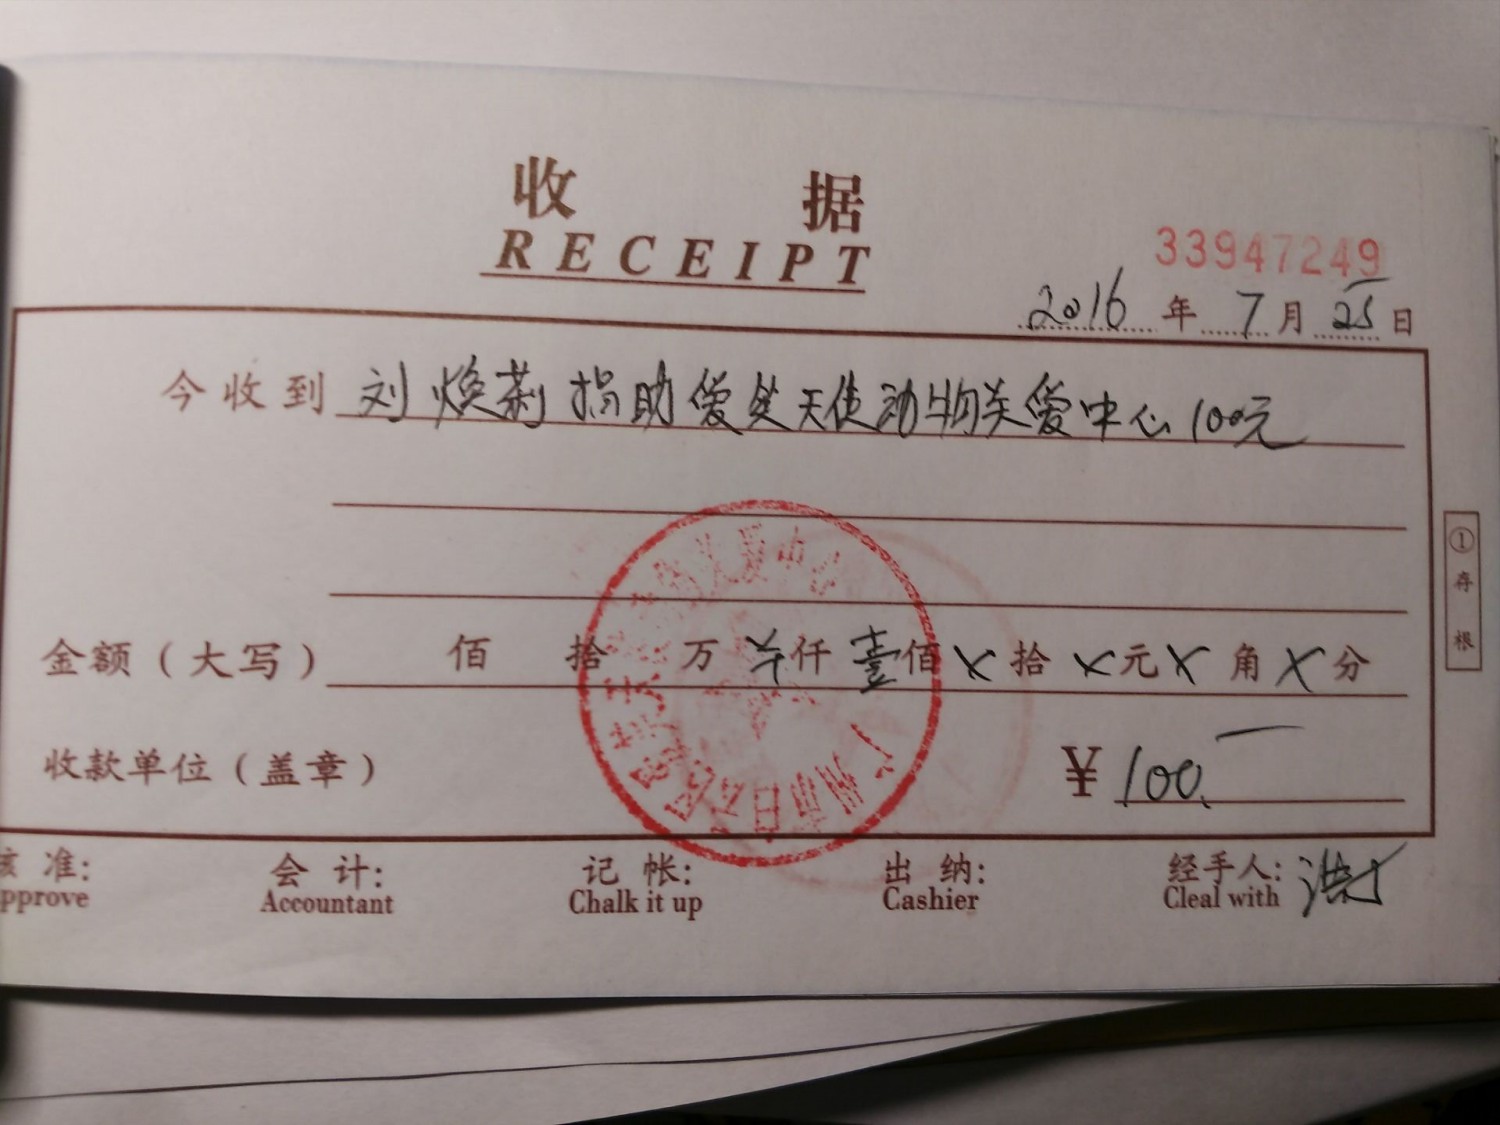 收 据
RECEIPT
33947249
2016 年 7 月 25 日
今收到 刘焕莉捐助爱处天使动物关爱中心100元
金额（大写） 佰 拾 万 仟 壹佰 X 拾 X 元 X 角 X 分
收款单位（盖章） ¥ 100.
①存根
准: 会 计: 记 帐: 出 纳: 经手人:
pprove Accountant Chalk it up Cashier Cleal with